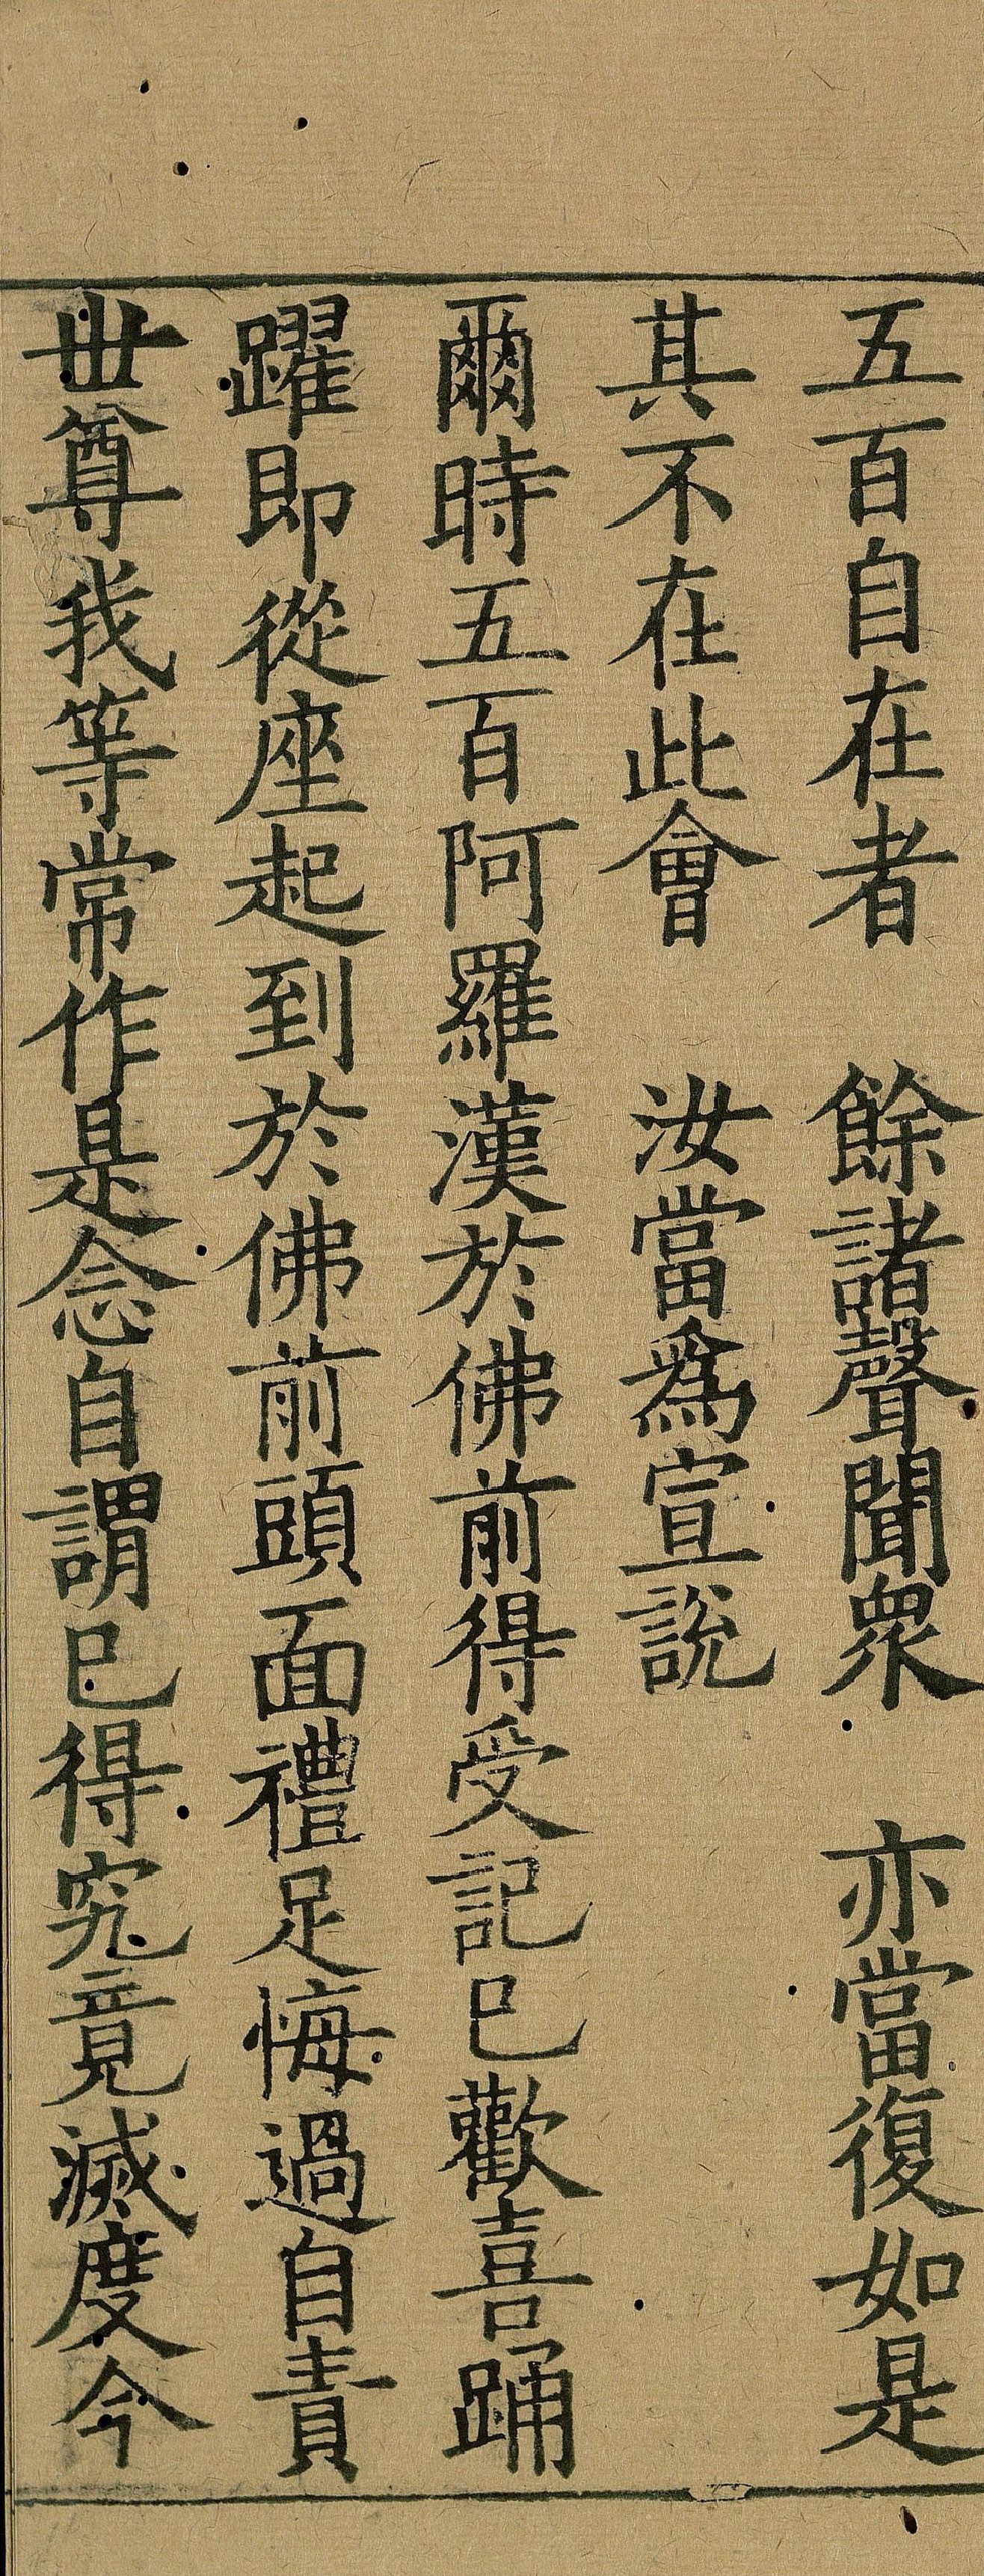 五百自在者　餘諸聲聞衆　亦當復如是
其不在此會　汝當爲宣說
爾時五百阿羅漢於佛前得受記已歡喜踊
躍即從座起到於佛前頭面禮足悔過自責
世尊我等常作是念自謂已得究竟滅度今